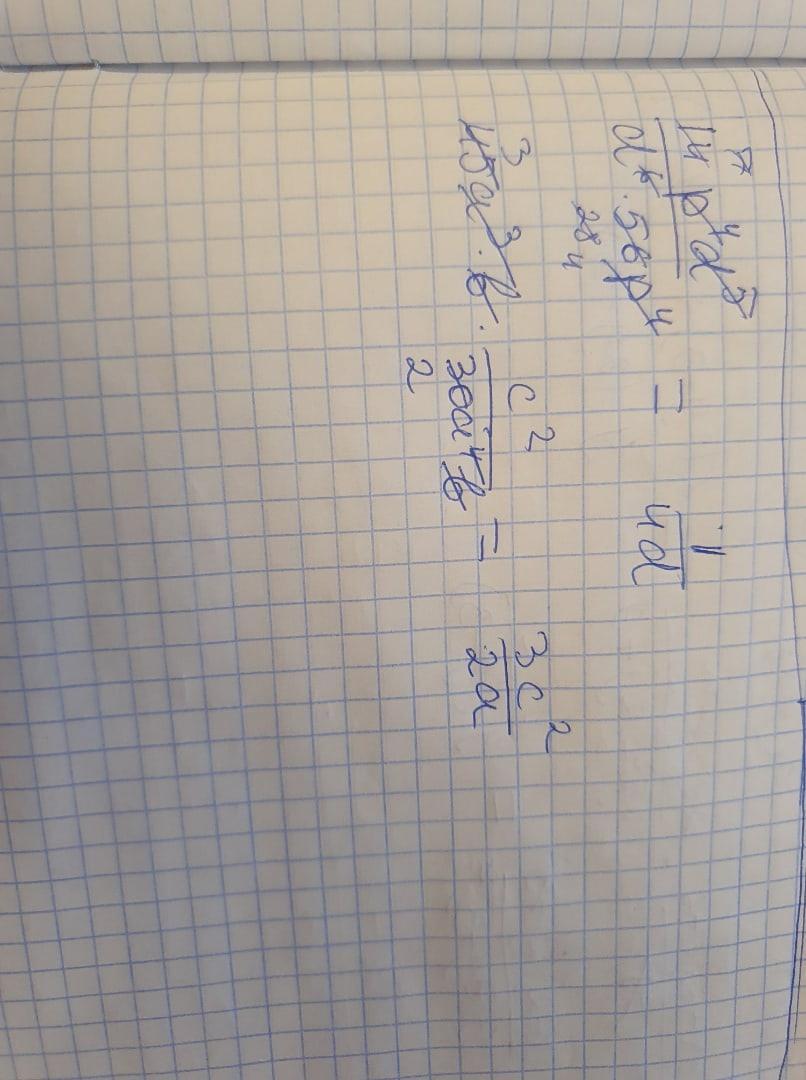 7
14 p⁴d⁵ / d⁶ · 56p⁴ = 1 / 4d
28 4
3
45a³ · b · c² / 30a⁴b = 3c² / 2a
2